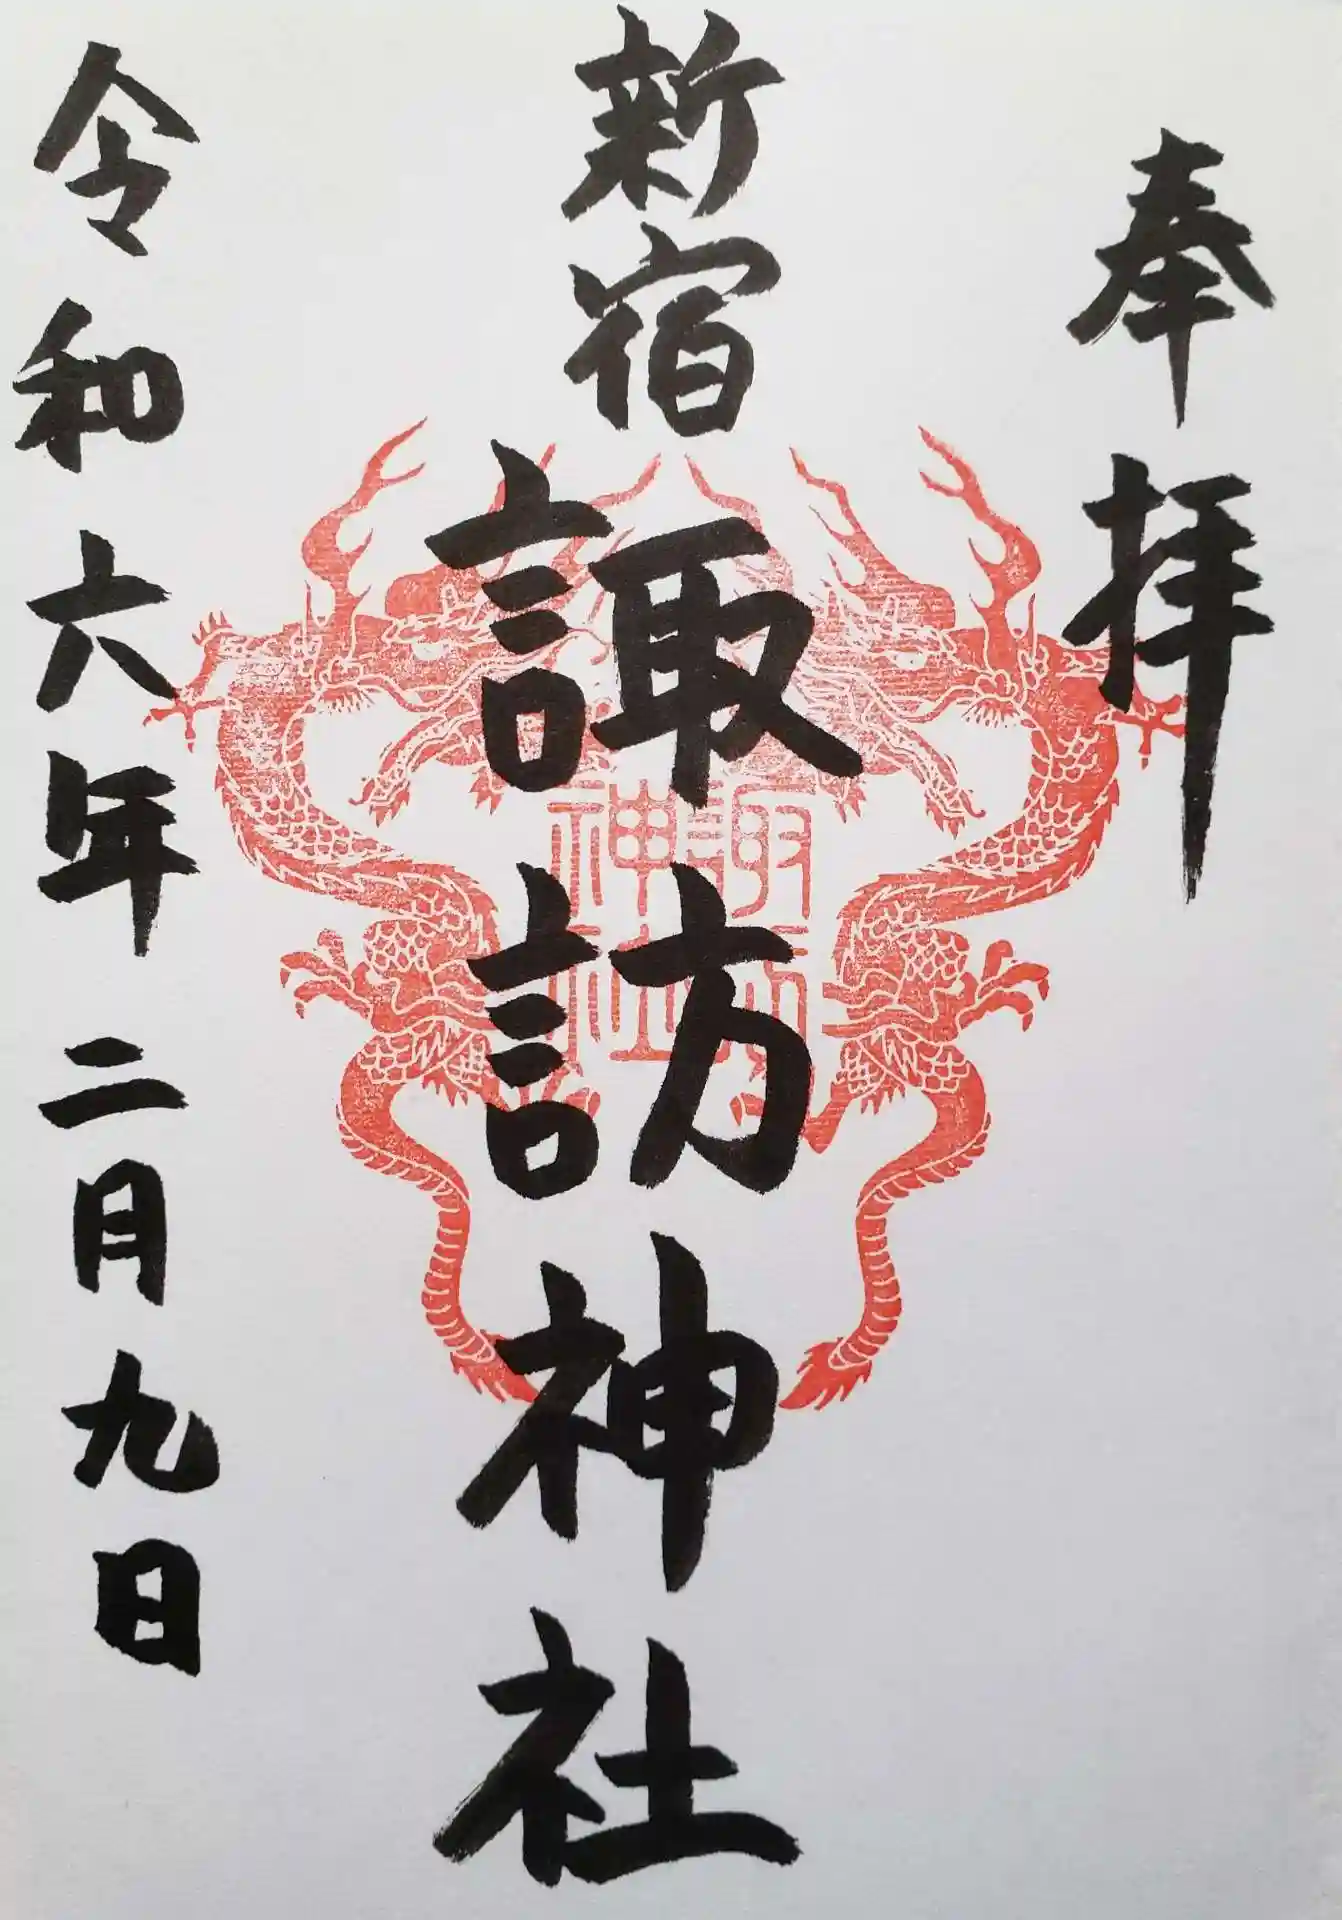 奉拝
新宿
諏訪神社
諏訪
神社
令和六年二月九日